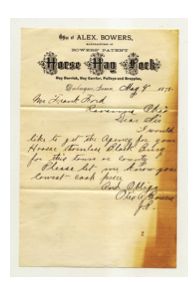 Office of ALEX. BOWERS,
MANUFACTURER OF
BOWERS' PATENT
Horse Hay Fork
Hay Derrick, Hay Carrier, Pulleys and Grapples,
Dubuque, Iowa, Aug 9 187
Mr Frank Ford
Ravenna Ohio
Dear Sir
I would
like to get the Agency for your
for this town or county
Please let me know your
lowest cash price
And Oblige
Bowers